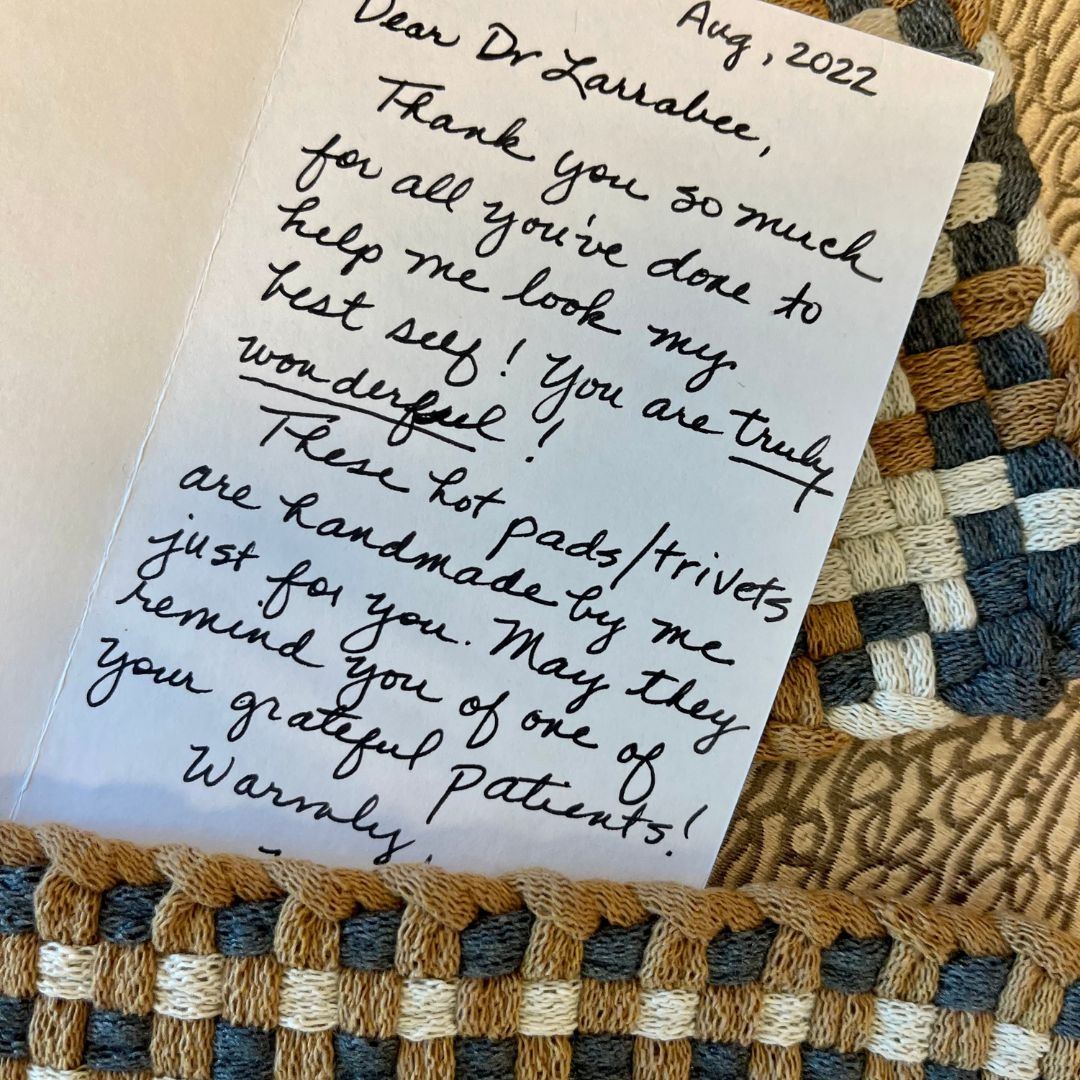 Aug, 2022
Dear Dr Larrabee,
Thank you so much
for all you've done to
help me look my
best self! You are truly
wonderful!
These hot pads/trivets
are handmade by me
just for you. May they
remind you of one of
your grateful patients!
Warmly,